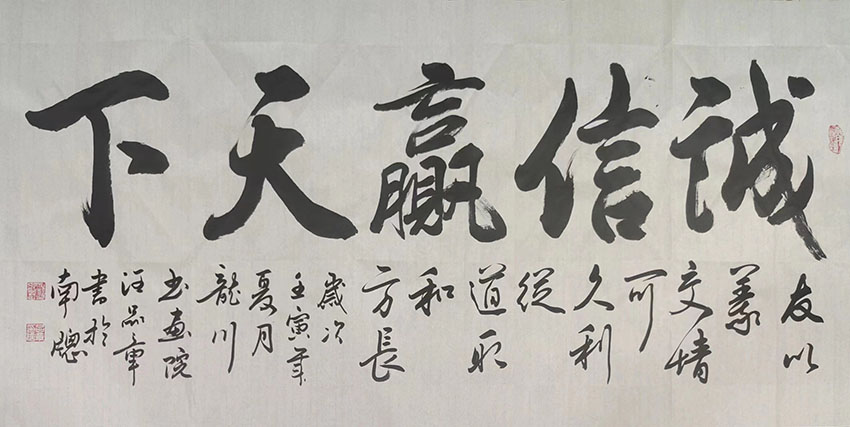 誠信贏天下
友以
義
交情
可
久利
從
道取
和
方長
歲次
壬寅年
夏月
龍川
书画院
汪品章
書於
南窗